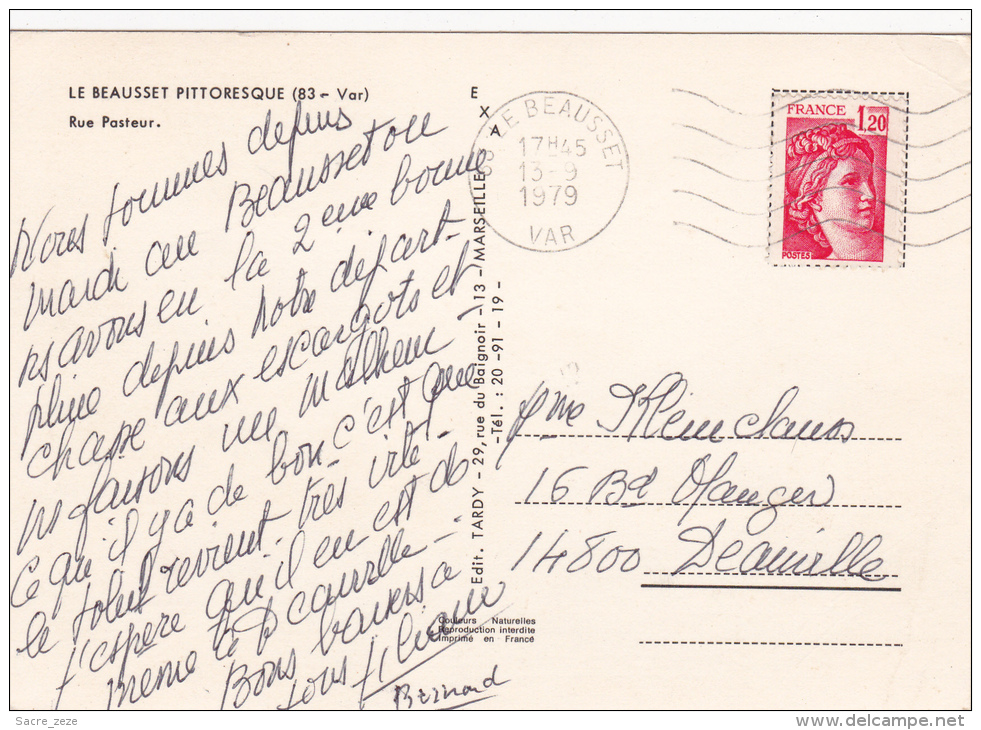 LE BEAUSSET PITTORESQUE (83 - Var)
Rue Pasteur.
Nous sommes depuis
mardi au Beausset ou
ns avons eu la 2eme bonne
pluie depuis notre départ -
chasse aux escargots et
ns faisons un malheur
Ce qu'il y a de bon c'est que
le soleil revient très vite !
J'espère qu'il en est de
même à Deauville -
Bons baisers à
tous
Bernard
E
X
A
Edit. TARDY - 29, rue du Baignoir - 13 - MARSEILLE
- Tél. : 20 - 91 - 19 -
LE BEAUSSET
17H45
13-9
1979
VAR
FRANCE 1,20
POSTES
Mme Kleinclauss
16 Bd Mauger
14800 Deauville
Couleurs Naturelles
Reproduction interdite
Imprimé en France
Sacre_zeze
www.delcampe.net